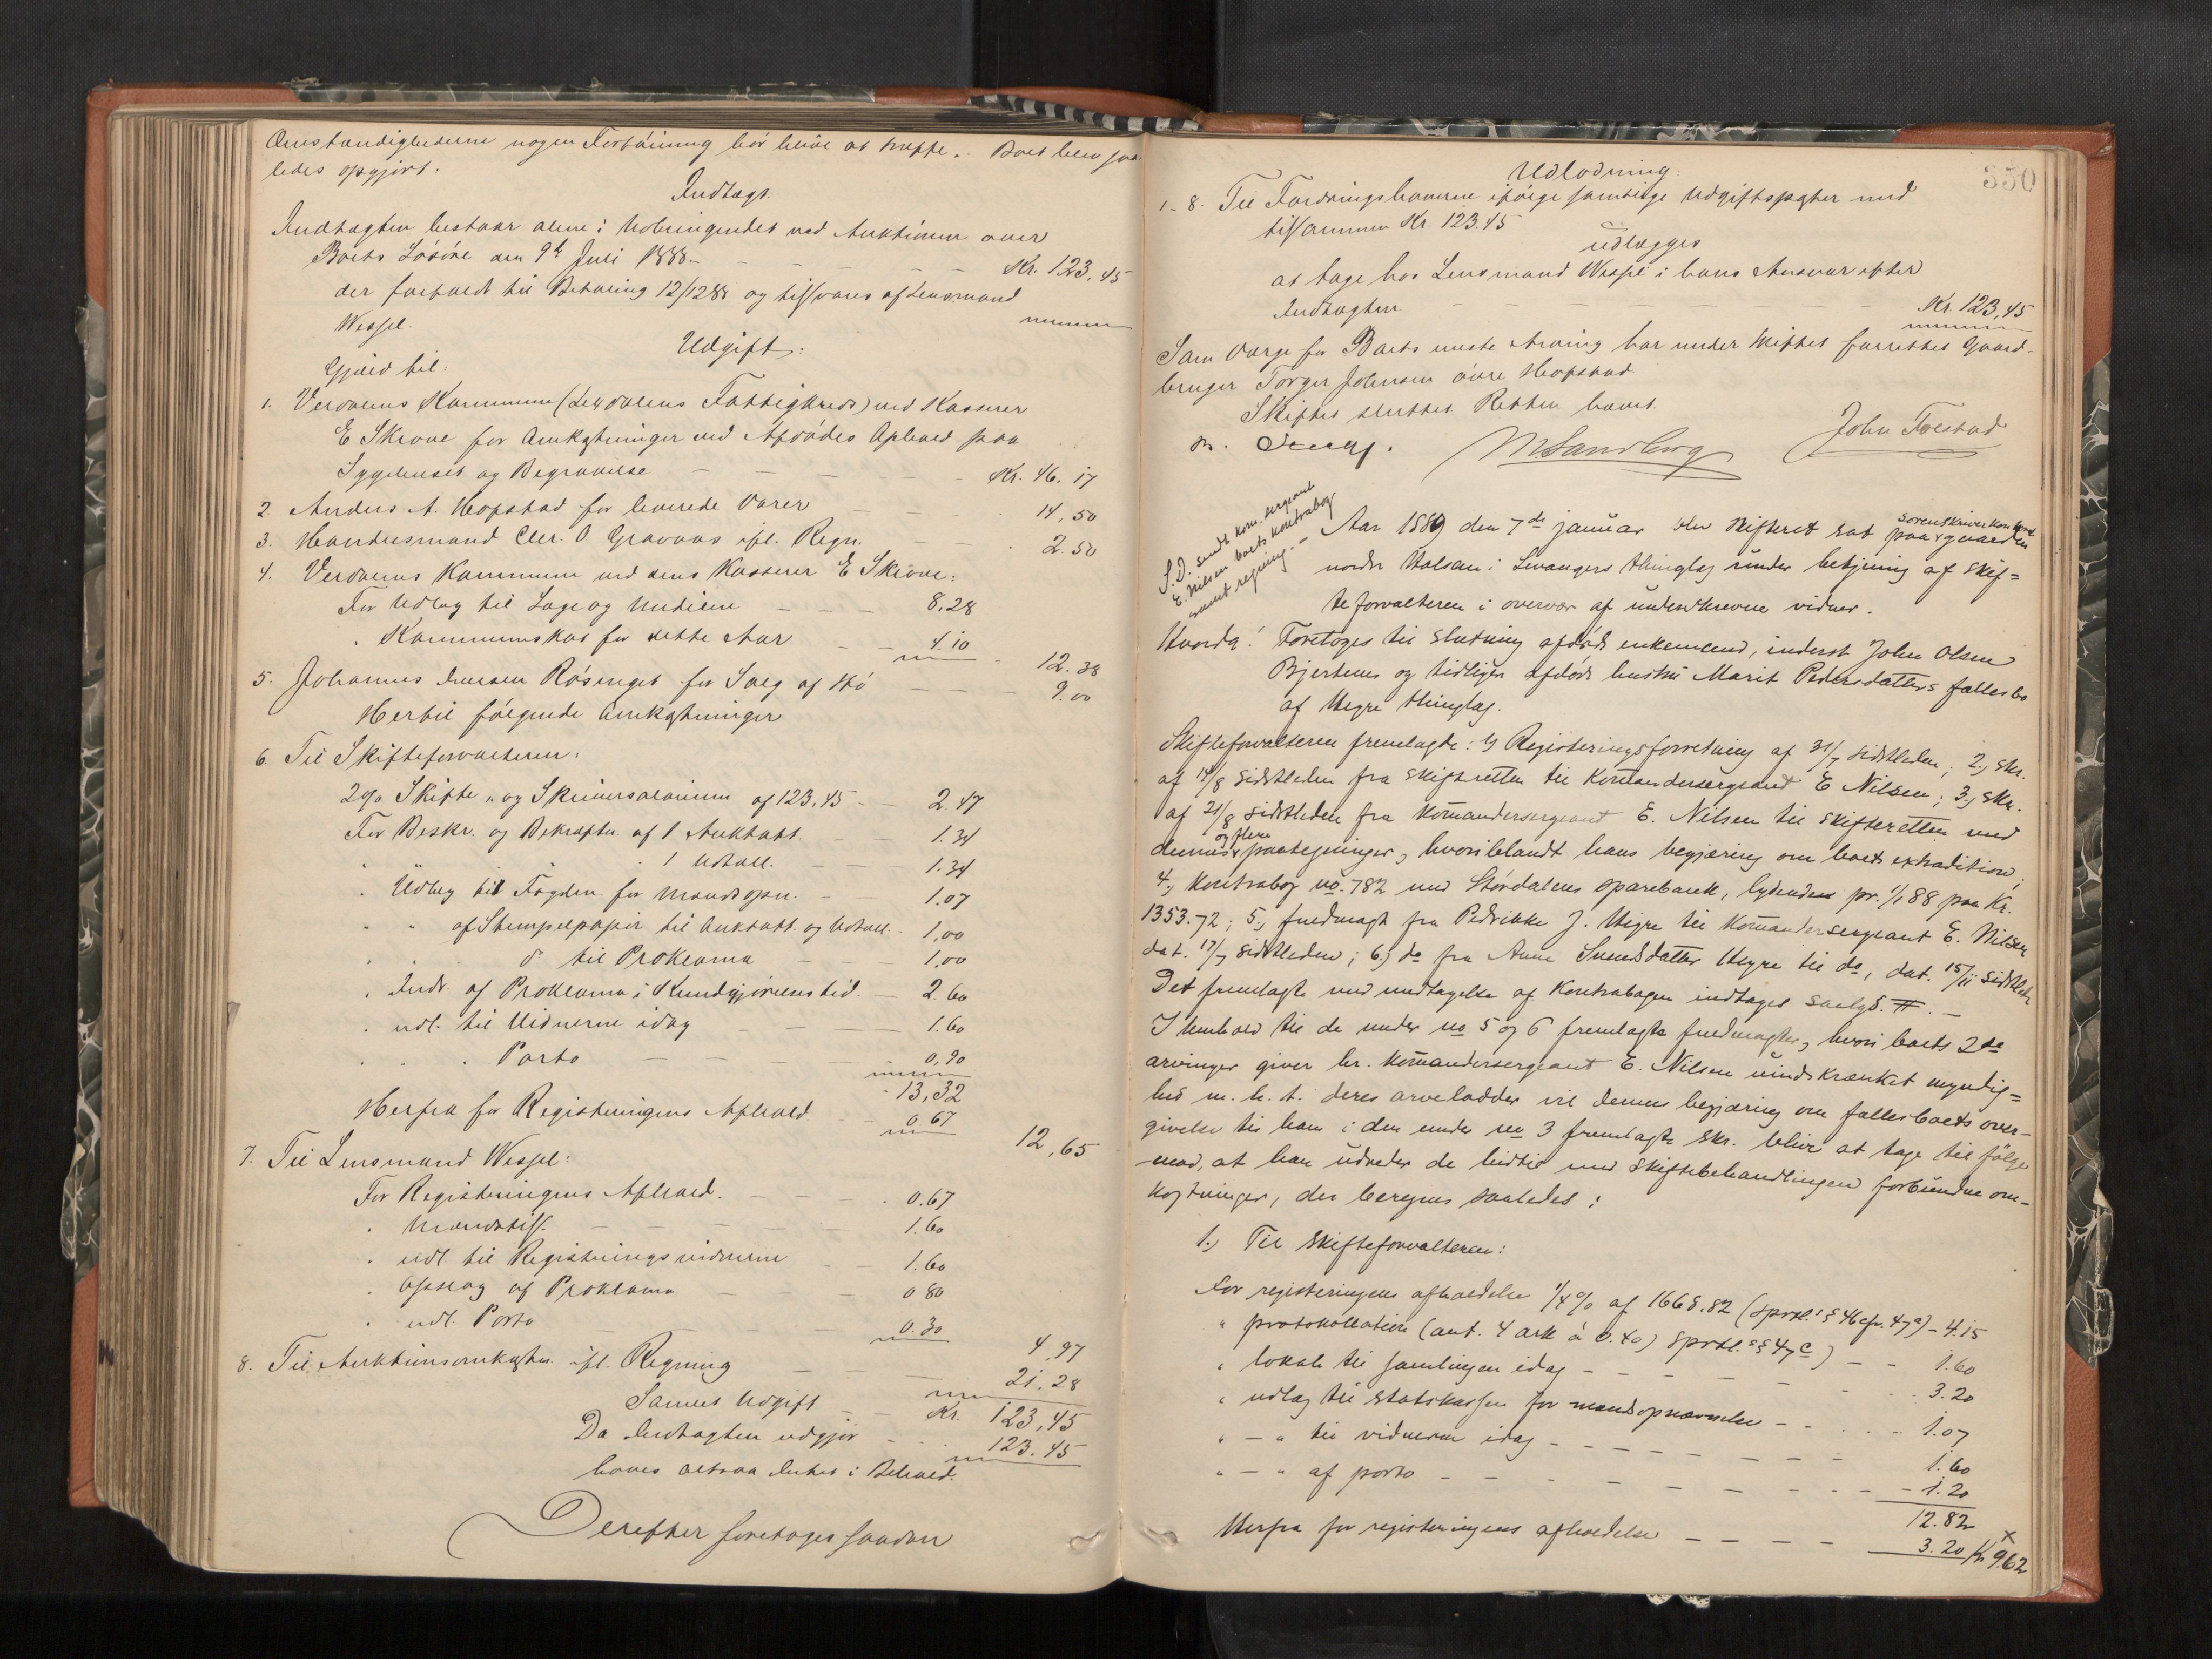 Omstændighederne nogen Fortøining bør blive at træffe. Boet blev saa-
ledes opgjort.
Indtægt.
Indtægten bestaar alene i Udbringendet ved Auktionen over
Boets Løsøre den 9de Juli 1888 - - - Kr. 123,45
der forfaldt til Betaling 12/12 88 og tilsvares af Lensmand
Wessel.
Udgift:
Gjæld til:
1. Verdalens Kommune (Lexdalens Fattigkreds) ved Kasserer
E Skrove for Omkostninger ved Afdødes Ophold paa
Sygehuset og Begravelse - - - Kr. 46.17
2. Anders A. Hopstad for leverede Varer - - 14,50
3. Handelsmand O Gravaas ifl. Regn. - - 2.50
4. Verdalens Kommune ved dens Kasserer E Skrove:
For Udlæg til Læge og Medicin - - 8.28
" Kommuneskat for dette Aar - - 4.10
12.38
5. Johannes Jensen Røsinget for Salg af Hø - - - 9.00
Hertil følgende Omkostninger
6. Til Skifteforvalteren:
2% Skifte- og Skriversalarium af 123.45 - 2.47
For Beskr. og Bekræftn. af 1 Auktutt. - 1.34
" 1 Udtall. - - 1.34
" Udlæg til Fogden for Mændsopn. - - 1.07
" " af Stempelpapir til Auktutt. og Udtall. - 1,00
" " do til Proklama - - - 1,00
" Indr. af Proklama i Kundgjørelsestid. - 2.60
" udl. til Vidnerne idag - - 1.60
" " " Porto - - - 0,90
13,32
Herfra for Registeringens Afhold. - 0.67
12,65
7. Til Lensmand Wessel:
For Registeringens Afhold. - - 0.67
" Mændstils. - - - 1.60
" udl. til Registeringsvidnerne - - 1.60
" Opslag af Proklama - - 0 80
" udl. Porto - - - 0.30
4.97
8. Til Auktionsomkostn. ifl. Regning - - 21.28
Samlet Udgift - Kr. 123,45
Da Indtægten udgjør - - 123.45
haves altsaa Intet i Behold.
Derefter foretoges saadan
350
Udlodning
1-8. Til Fordringshaverne ifølge samtlige Udgiftsposter med
tilsammen Kr. 123.45
udlægges
at tage hos Lensmand Wessel i hans Ansvar efter
Indtægten - - - Kr. 123,45
Som Værge for Boets Arving har under Skiftet forrettet Gaard-
bruger Torger Johnsen øvre Hopstad
Skiftet sluttet. Retten hævet.
MSandberg
John Tolstad
S.D. sendt kom. sergeant
E. Nilsen boets kontrabog
samt regning. -
Aar 1889 den 7de januar blev skifteret sat paa sorenskriverkontoret gaarden
nordre Halsan i Levangers thinglag under betjening af skif=
teforvalteren i overvær af underskrevne vidner.
Hvorda: Foretoges til slutning afdøde enkemand, inderst John Olsen
Bjertems og tidligere afdøde hustru Marit Pedersdatters fællesbo
af Hegre thinglag.
Skifteforvalteren fremlagde: 1) Registeringsforretning af 31/7 sidstleden; 2.) skr.
af 14/8 sidstleden fra skifteretten til Komandersergeant E Nilsen; 3.) skr.
af 21/8 sidstleden fra Komandersergeant E. Nilsen til skifteretten med
dennes og flere paategninger, hvoriblandt hans begjæring om boets extradition;
4.) Kontrabog no. 782 med Størdalens sparebank, lydende pr. 1/1 88 paa Kr.
1353.72; 5.) fuldmagt fra Pedrikke J. Hegre til Komandersergeant E. Nilsen
dat. 17/7 sidstleden; 6.) do fra Anne Svendsdatter Hegre til do, dat. 15/11 sidstleden
Det fremlagte med undtagelse af Kontrabogen indtages saalyd. #. -
I Henhold til de under no 5 og 6 fremlagte fuldmagter, hvori boets 2de
arvinger giver hr. Komandersergeant E. Nilsen uindskrænket myndig=
hed m. h. t. deres arvelodder vil dennes begjæring om fællesboets over-
givelse til ham i den under no 3 fremlagte skr. blive at tage til følge
mod, at han udreder de hidtil med skiftebehandlingen forbundne om-
kostninger, der beregnes saaledes:
1.) Til skifteforvalteren:
For registeringens afholdelse 1/4% af 1668.82 (sprtl.s § 46 cfr. 47a) - 4.15
" protokollation (ant. 4 ark à 0.40) sprtl.s § 47c) - - 1.60
" lokale til samlingen idag - - - 3.20
" udlæg til statskassen for mændsopnævnelse - - 1.07
" - " til vidnerne idag - - - 1.60
" - " af porto - - - 1.20
12.82
Herfra for registeringens afholdelse - - - 3.20 Kr. 9.62